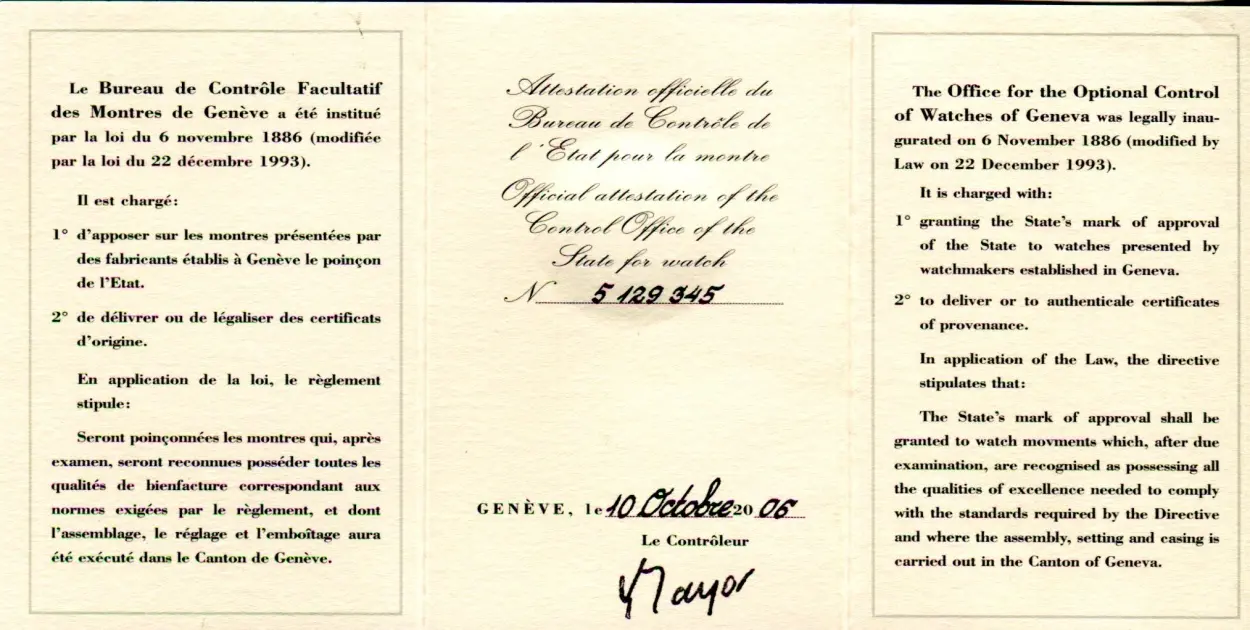 Le Bureau de Contrôle Facultatif
des Montres de Genève a été institué
par la loi du 6 novembre 1886 (modifiée
par la loi du 22 décembre 1993).
Il est chargé:
1° d'apposer sur les montres présentées par
des fabricants établis à Genève le poinçon
de l'Etat.
2° de délivrer ou de légaliser des certificats
d'origine.
En application de la loi, le règlement
stipule:
Seront poinçonnées les montres qui, après
examen, seront reconnues posséder toutes les
qualités de bienfacture correspondant aux
normes exigées par le règlement, et dont
l'assemblage, le réglage et l'emboîtage aura
été exécuté dans le Canton de Genève.
Attestation officielle du
Bureau de Contrôle de
l'Etat pour la montre
Official attestation of the
Control Office of the
State for watch
N 5 129 345
GENÈVE, le 10 Octobre 20 06
Le Contrôleur
Mayor
The Office for the Optional Control
of Watches of Geneva was legally inau-
gurated on 6 November 1886 (modified by
Law on 22 December 1993).
It is charged with:
1° granting the State's mark of approval
of the State to watches presented by
watchmakers established in Geneva.
2° to deliver or to authenticale certificates
of provenance.
In application of the Law, the directive
stipulates that:
The State's mark of approval shall be
granted to watch movments which, after due
examination, are recognised as possessing all
the qualities of excellence needed to comply
with the standards required by the Directive
and where the assembly, setting and casing is
carried out in the Canton of Geneva.